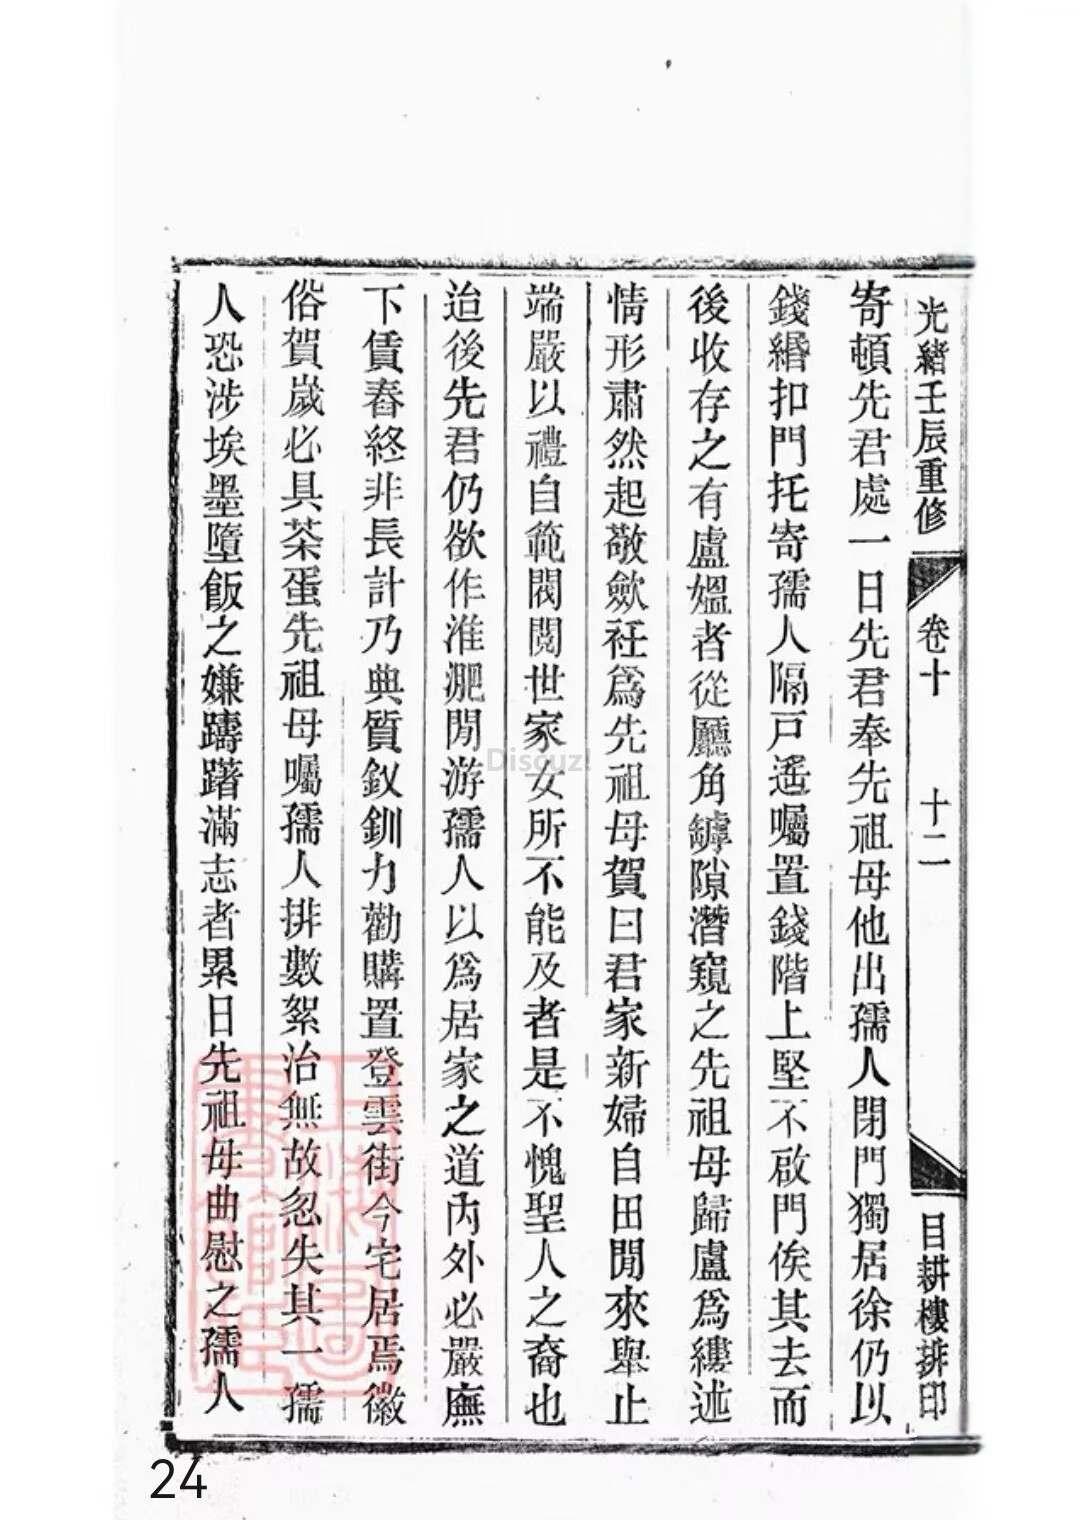 光緒壬辰重修 卷十 十二 目耕樓排印
寄頓先君處一日先君奉先祖母他出孺人閉門獨居徐仍以
錢緡扣門托寄孺人隔戸遙囑置錢階上堅不啟門俟其去而
後收存之有盧媼者從廳角罅隙潛窺之先祖母歸盧爲縷述
情形肅然起敬斂衽爲先祖母賀曰君家新婦自田閒來舉止
端嚴以禮自範閥閱世家女所不能及者是不愧聖人之裔也
迨後先君仍欲作淮淝閒游孺人以爲居家之道內外必嚴廡
下賃舂終非長計乃典質釵釧力勸購置登雲街今宅居焉徽
俗賀歲必具茶蛋先祖母囑孺人排數絮治無故忽失其一孺
人恐涉埃墨墮飯之嫌躊躇滿志者累日先祖母曲慰之孺人
Discuz!
24